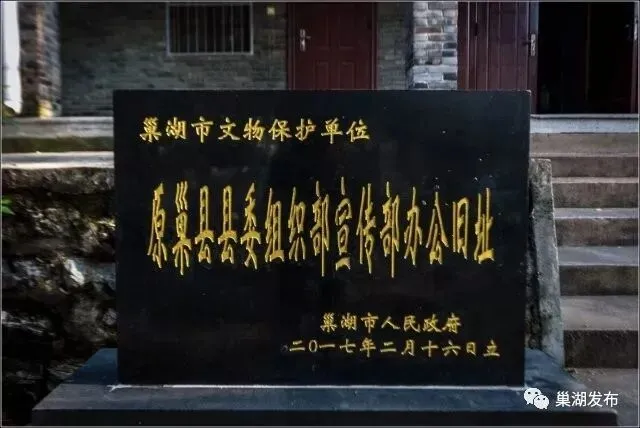 巢湖市文物保护单位
原巢县县委组织部宣传部办公旧址
巢湖市人民政府
二〇一七年二月十六日立
巢湖发布